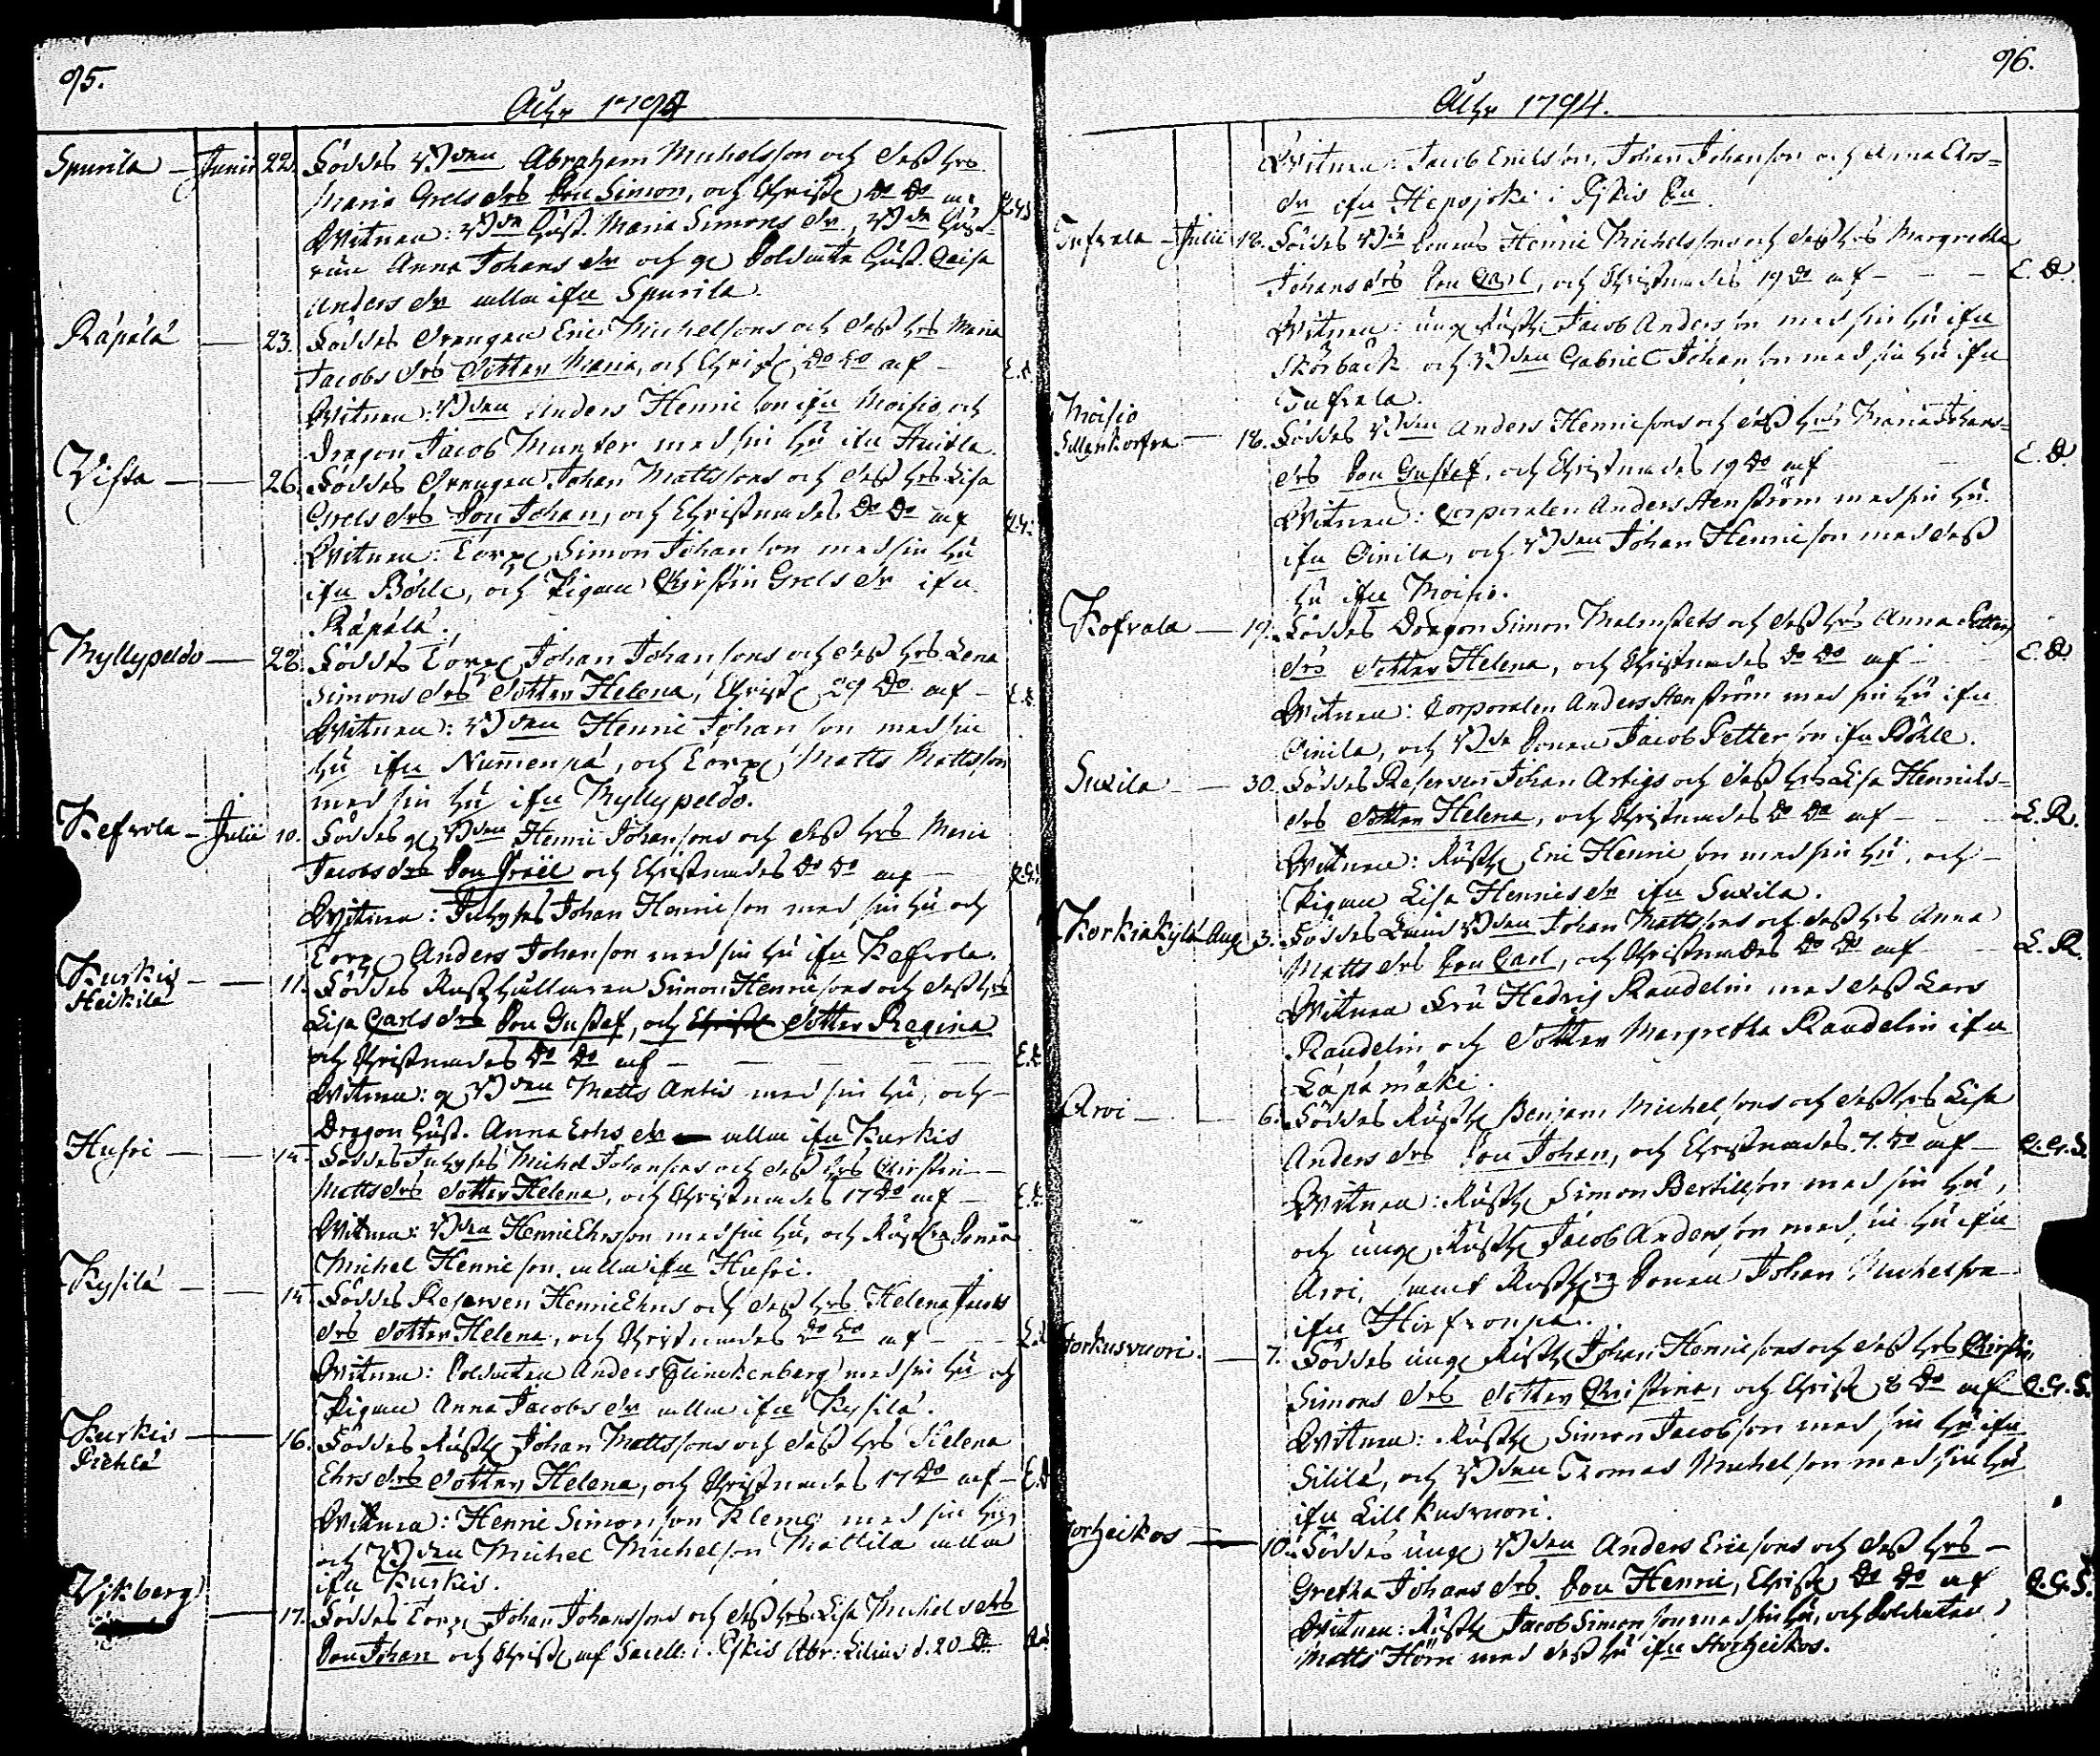 95.
Åhr 1794
Spurila — Junii 22. Föddes Bden Abraham Michelsson och dess hrs
Maria Grels drs Son Simon, och Christ do do af
Witnen: Bde Hust. Maria Simons dr, Bde
Anna Johans dr och gl Soldate Hust. Caisa
Anders dr alla ifrn Spurila.
Räpälä — 23. Föddes Drengen Eric Michelsons och dess hrs Maria
Jacobs drs Dotter Maria, och Christ do do af — E.E.
Witnen: Bden Anders Henricson ifrn Moisio och
Dragon Jacob Munter med sin Hu ifrn Huitla.
Vista — 26. Föddes Drengen Johan Mattssons och dess hrs Lisa
Grels drs Son Johan, och Christnades do do af
Witnen: Torp Simon Johanson med sin Hu
ifrn Böhle, och Pigan Christin Grels dr ifrn
Räpälä.
Myllypeldo — 28. Föddes Torp Johan Johansons och dess hrs Lena
Simons drs Dotter Helena, Christ 29 do af — E.E.
Witnen: Bden Henric Johanson med sin
Hu ifrn Nummenpä, och Torp Matts Mattsson
med sin Hu ifrn Myllypeldo.
Kefvola — Julii 10. Föddes gl Bden Henric Johansons och dess hrs Maria
Jacobs drs Son Israel och Christnades do do af —
Witnen: Inhyses Johan Henricson med sin Hu och
Torp Anders Johanson med sin Hu ifrn Kefvola.
Kurkis
Heikilä — 11. Föddes Rusthållaren Simon Henricsons och dess hrs
Lisa Carls drs Son Gustaf, och Christ Dotter Regina
och Christnades do do af — E.E.
Witnen: gl Bden Matts Antis med sin Hu, och
Dragon Hust. Anna Erhs dr alla ifrn Kurkis
Husvi — 15. Föddes Inhyses Michel Johansons och dess hrs Christin
Matts drs Dotter Helena, och Christnades 17 do af — E.E.
Witnen: Bden Henric Ehrsson med sin Hu, och Rusth Sonen
Michel Henricson alla ifrn Husvi.
Kysilä — 15. Föddes Reserven Henric Ehrs och dess hrs Helena Jacobs
drs Dotter Helena, och Christnades do do af —
Witnen: Soldaten Anders Flinckenberg med sin Hu och
Pigan Anna Jacobs dr alla ifrn Kysilä.
Kurkis
Pichlä — 16. Föddes Rusth Johan Mattssons och dess hrs Helena
Ehrs drs Dotter Helena, och Christnades 17 do af —
Witnen: Henric Simonson Klemo med sin Hu,
och Bden Michel Michelson Mattila alla
ifrn Kurkis.
Vikberg — 17. Föddes Torp Johan Johanssons och dess hrs Lisa Michels drs
Son Johan och Christ af Sacell: i Pyttis Abr: Lilius d. 20 do
96.
Åhr 1794.
Witnen: Jacob Ericsson, Johan Johanson och Anna Ehrs=
dr ifrn Hepojoki i Rfkis Sn
Tufvala — Julii 18. Föddes Bde Sonens Henric Michelsons och dess hrs Margretha
Johans drs Son Carl, och Christnades 19 do af — E.E.
Witnen: ung Rusth Jacob Anderson med sin Hu ifrn
Skörback och Bden Gabriel Johanson med sin Hu ifrn
Tufvala.
Moisio
— 18. Föddes Bden Anders Henricsons och dess hrs Maria Johans=
drs Son Gustaf, och Christnades 19 do af E.E.
Witnen: Corporalen Anders Stenström med sin Hu
ifrn Oinila, och Bden Johan Henricson med dess
Hu ifrn Moisio.
Kofvala — 19. Föddes Dragon Simon Malmstets och dess hrs Anna Petters
drs Dotter Helena, och Christnades do do af E.E.
Witnen: Corporalen Anders Stenström med sin Hu ifrn
Oinila, och Bde Sonen Jacob Petterson ifrn Böhle.
Suxila — 30. Föddes Reserven Johan Artigs och dess hrs Lisa Henrichs=
drs Dotter Helena, och Christnades do do af — L.R.
Witnen: Rusth Eric Henricson med sin Hu, och
Pigan Lisa Henrics dr ifrn Suxila.
Korkiakylä Aug 3. Föddes Land Bden Johan Mattssons och dess hrs Anna
Matts drs Son Carl, och Christnades do do af L.R.
Witnen Fru Hedvig Randelin med dess Lars
Randelin och Dotter Margretha Randelin ifrn
Läpämäki.
Arvi — 6. Föddes Rusth Benjam Michelsons och dess hrs Lisa
Anders drs Son Johan, och Christnades 7. do af — C.G.S.
Witnen: Rusth Simon Bertillson med sin Hu,
och ung Rusth Jacob Anderson med sin Hu ifrn
Arvi, samt Rusth Sonen Johan Michelson
ifrn Hirfvonpä.
Storkusvuori. — 7. Föddes ung Rusth Johan Henricsons och dess hrs Christin
Simons drs Dotter Christina, och Christ 8 do af C.G.S.
Witnen: Rusth Simon Jacobson med sin Hu ifrn
Sillilä, och Bden Thomas Michelson med sin Hu
ifrn Lill Kusvuori.
Storheikos — 10. Föddes ung Bden Anders Ericsons och dess hrs —
Gretha Johans drs. Son Henric, Christ do do af C.G.S.
Witnen: Rusth Jacob Simonson med sin Hu, och Soldaten
Matts Hörn med dess Hu ifrn Storheikos.